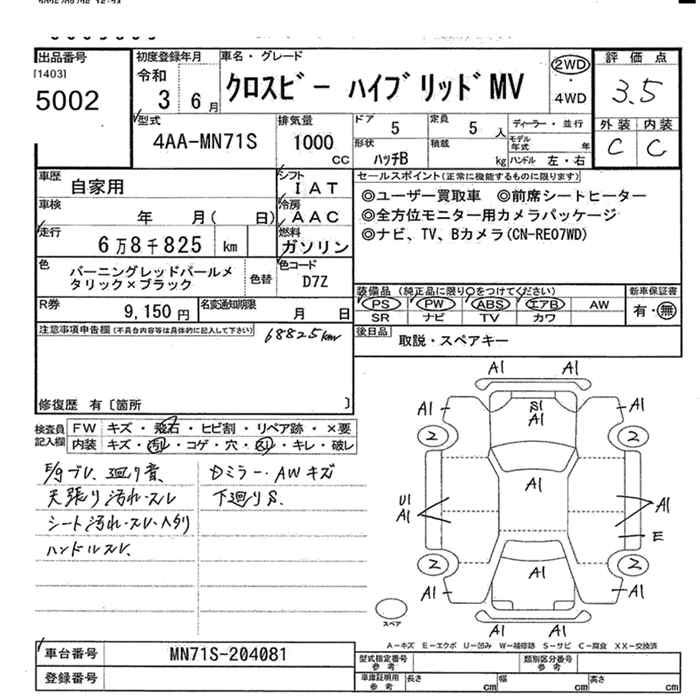 出品番号
[1403]
5002
初度登録年月
令和
3 6月
車名・グレード
クロスビー ハイブリッド MV
2WD
4WD
評価点
3.5
外装 内装
C C
型式
4AA-MN71S
排気量
1000
CC
ドア
5
定員
5 人
形状
ハッチB
積載
kg
ディーラー・並行
モデル年式 年
ハンドル 左・右
車歴
自家用
シフト
IAT
車検
年 月( 日)
冷房
AAC
走行
6万8千825 km
燃料
ガソリン
色
バーニングレッドパールメタリック×ブラック
色替
色コード
D7Z
R券
9,150円
名変通知期限
月 日
セールスポイント(正常に機能するものに限ります)
◎ユーザー買取車 ◎前席シートヒーター
◎全方位モニター用カメラパッケージ
◎ナビ、TV、Bカメラ(CN-RE07WD)
装備品 (純正品に限り○をつけてください)
新車保証書
PS PW ABS エアB AW
SR ナビ TV カワ
有・無
後日品
取説・スペアキー
注意事項申告欄(不具合内容等は具体的に記入して下さい)
68825km
修復歴 有〔箇所 〕
検査員記入欄
FW キズ・飛石・ヒビ割・リペア跡・×要
内装 キズ・汚れ・コゲ・穴・スレ・キレ・破レ
天張り汚れ・スレ
ハンドルスレ
Dミラー・AWキズ
下廻りS.
A1 A1
A1 S1 A1 A1
2 2
A1
U1
A1 A1
E
2 2
A1 A1 A1
A1 A1
スペア
A-キズ E-エクボ U-凹み W-補修跡 S-サビ C-腐食 XX-交換済
車台番号
MN71S-204081
登録番号
型式指定番号
参考
類別区分番号
参考
車庫証明用
参考
長さ cm 幅 cm 高さ cm